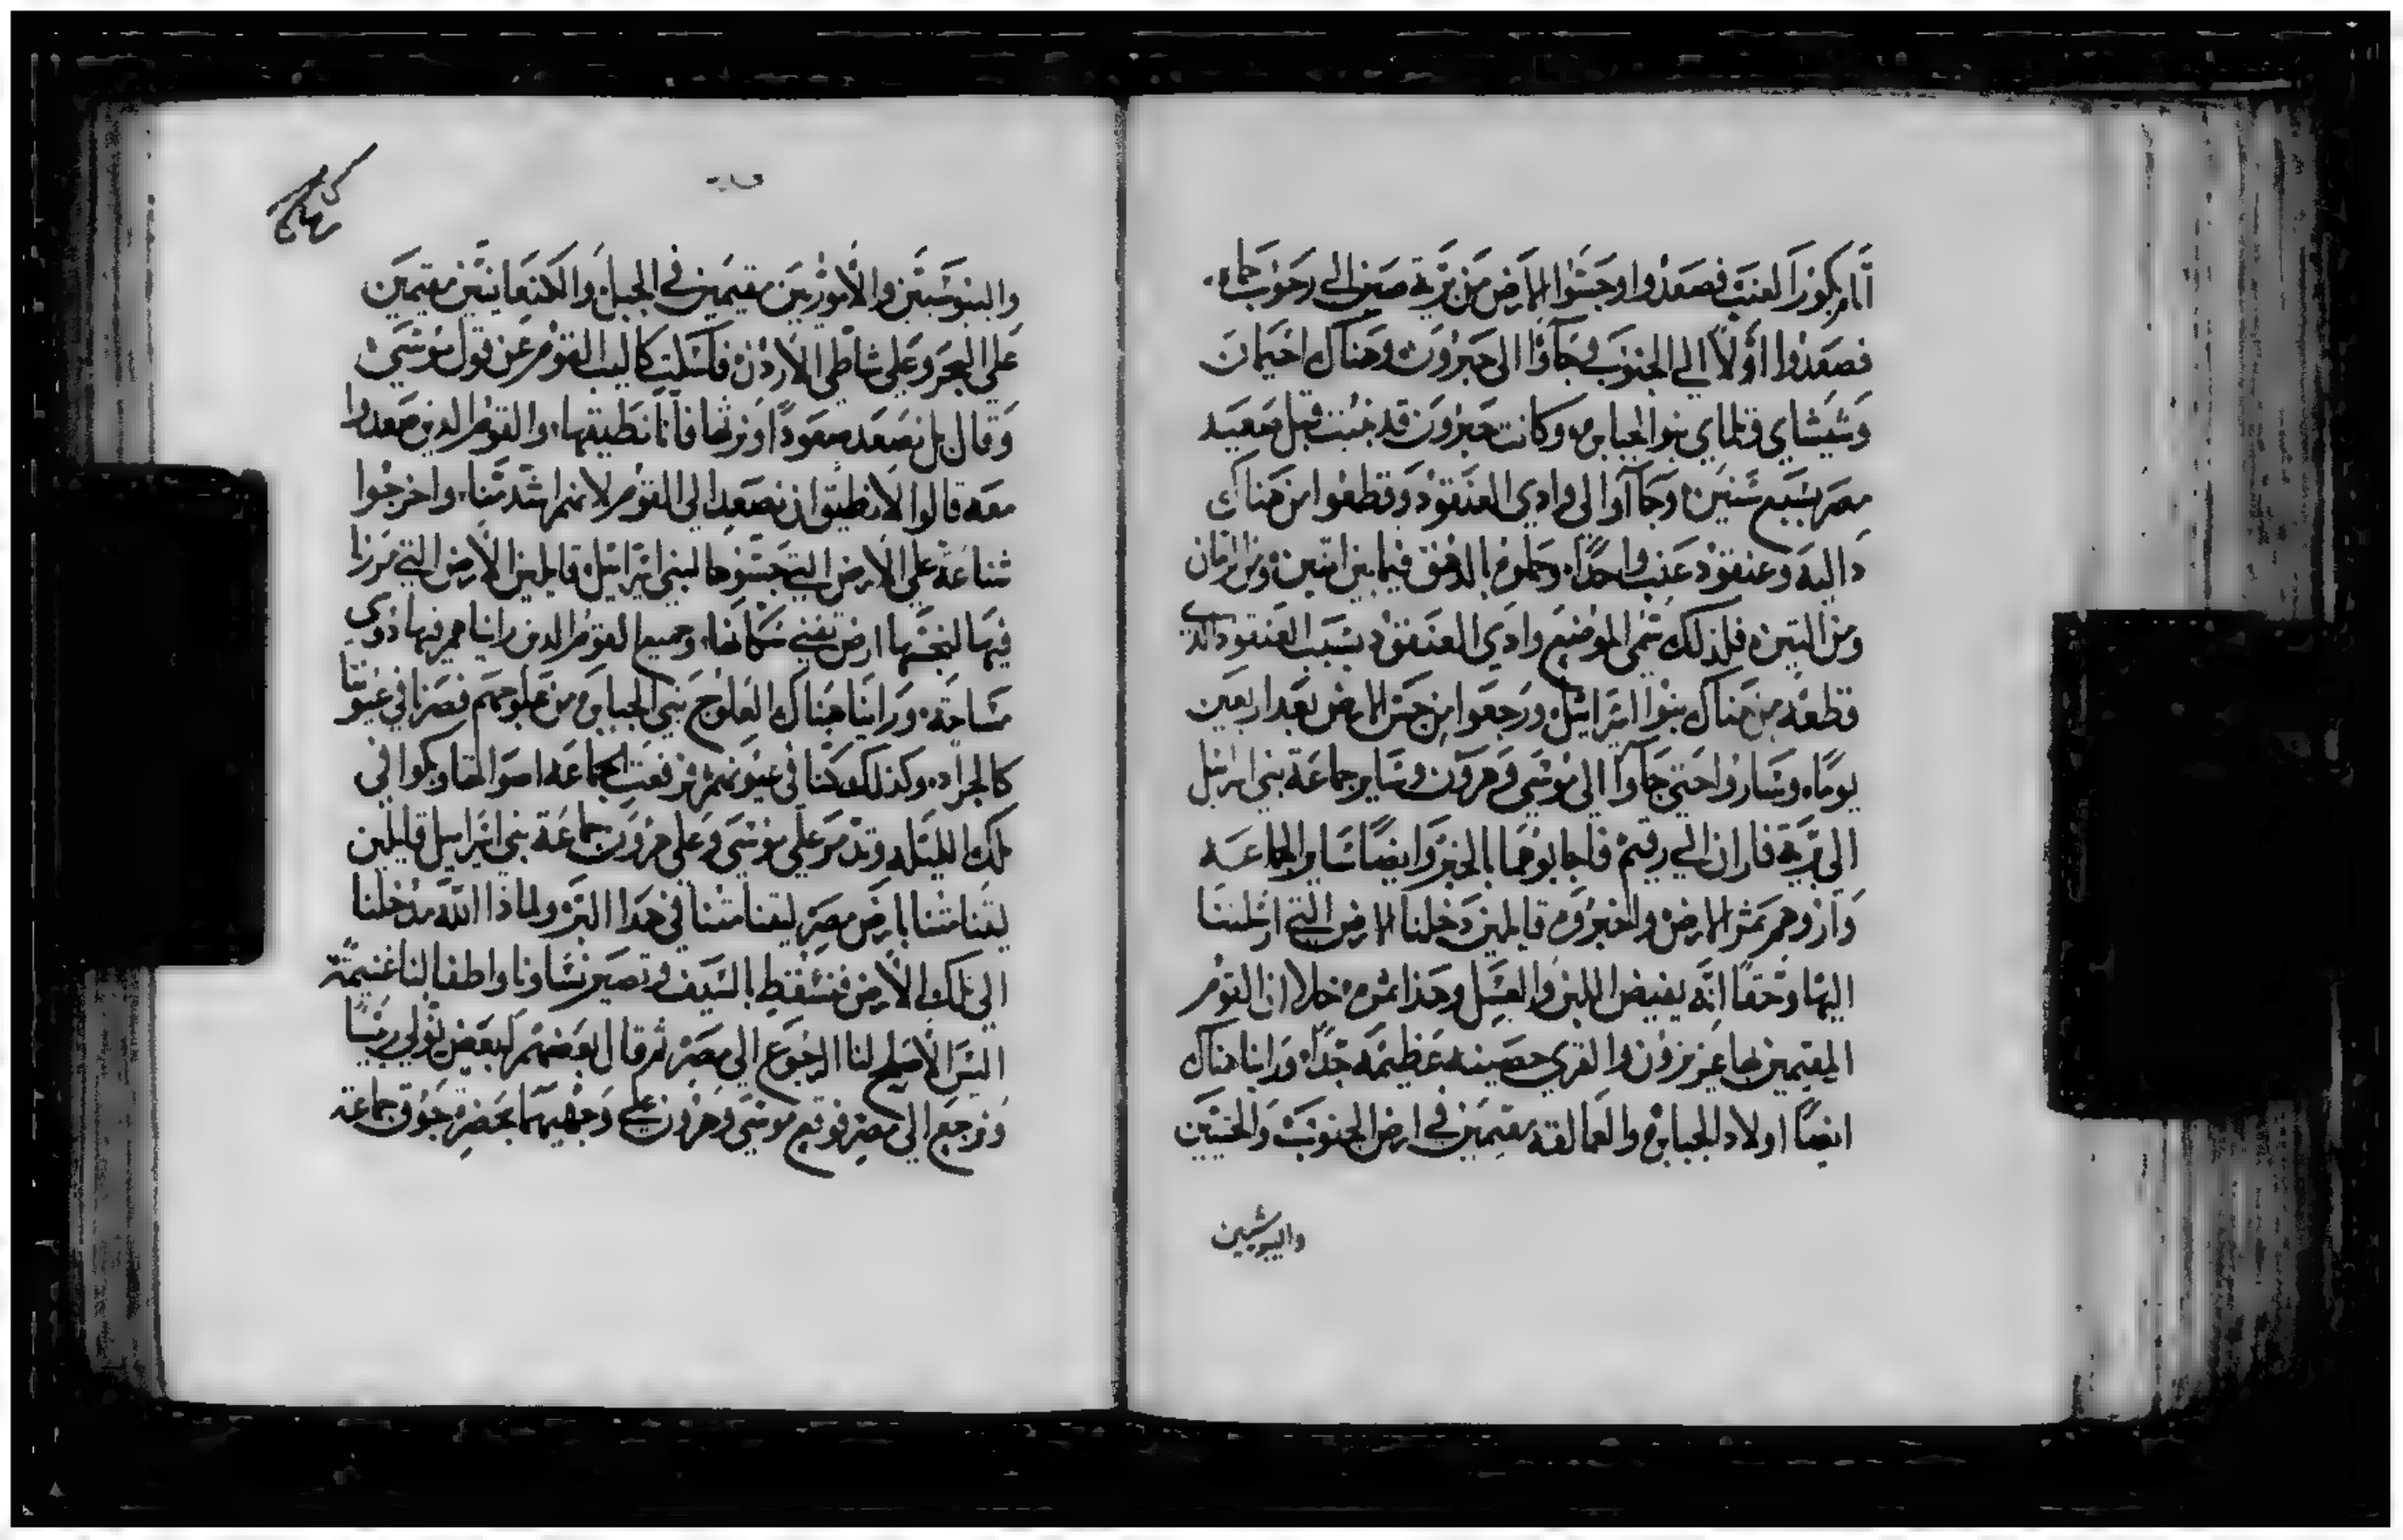 آبار بكور العنب فصعدوا وجسّوا الارض من برّية صين الى رحوب حماه.
فصعدوا أولاً الى الجنوب وجآوا الى حبرون وهناك احيمان
وشيشاي وتلماي بنوا الجبابره وكانت حبرون قد بنيت قبل صعيد
مصر بسبع سنين وجآوا الى وادي العنقود وقطعوا من هناك
داليه وعنقود عنب واحدًا. وحملوه بالدهق فيما بين اثنين ومن الرمان
ومن التين فلذلك سُمّى الموضع وادي العنقود بسبب العنقود الذي
قطعه من هناك بنوا اسرائيل ورجعوا من جسّ الارض بعد اربعين
يومًا. وساروا حتى جآوا الى موسى وهرون وساير جماعة بني اسرائيل
الى برّية فاران الى رقيم فاجابوهما بالخبر وايضًا ساير الجماعه
وأروهم ثمر الارض واخبروه قايلين دخلنا الارض التي ارسلتنا
اليها وحقًا انّه يفيض اللبن والعسل وهذا ثمره خلا ان القوم
المقيمين بها عزيزون والقرى حصينه عظيمه جدًا. وراينا هناك
ايضًا اولاد الجبابره والعمالقه مقيمين في ارض الجنوب والحثيين
واليبوسيين
واليبوسيين والأموريين مقيمين في الجبل والكنعانيين مقيمين
على البحر وعلى شاطي الاردن فاسكت كاليب القوم عن قول موسى
وقال بل نصعد صعودًا ونرثها فأنّا نطيقها. والقوم الذين صعدوا
معه قالوا لا نطيق ان نصعد الى القوم لانهم اشد منّا. واخرجوا
شناعة على الارض التي جسّوها لبني اسرائيل قايلين الأرض التي مررنا
فيها لنجسّها ارض تفني سكانها. وجميع القوم الذين راينا هم فيها ذوي
مساحة. وراينا هناك العلوج بني الجبابره من علوجهم فصرنا في عيوننا
كالجراد. وكذلك كنّا في عيونهم فرفعت الجماعه اصواتها وبكوا في
تلك الليله وتذمر على موسى وعلى هرون جماعة بني اسراييل قايلين
ليتنا متنا بأرض مصر ليتنا متنا في هذا البرّ ولماذا الله مدخلنا
الى تلك الأرض فنسقط بالسيف وتصير نساونا واطفالنا غنيمة
اليس الأصلح لنا الرجوع الى مصر ثم قال بعضهم لبعض نولي رئيسًا
ونرجع الى مصر فوقع موسى وهرون على وجهيهما بحضرة جوق جماعة